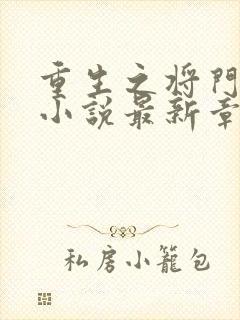 重生之将門
小說最新章
私房小籠包